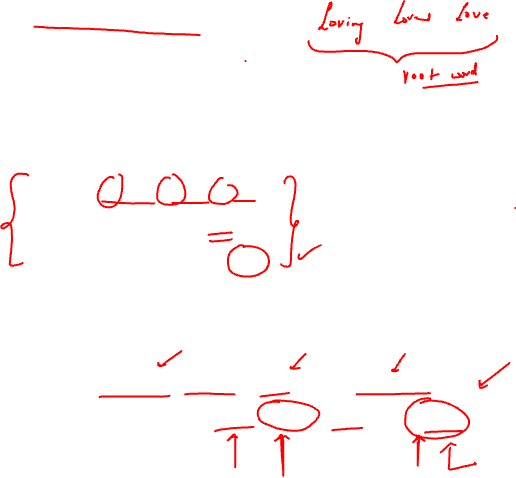 Loving Loved Love
root word